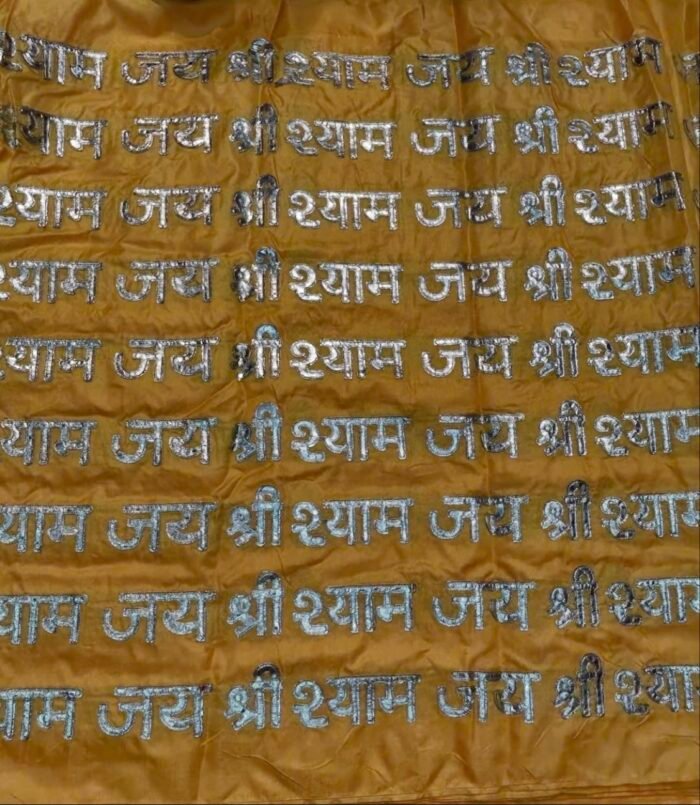 श्याम जय श्री श्याम जय श्री श्याम
श्याम जय श्री श्याम जय श्री श्याम
श्याम जय श्री श्याम जय श्री श्याम
श्याम जय श्री श्याम जय श्री श्याम
श्याम जय श्री श्याम जय श्री श्याम
श्याम जय श्री श्याम जय श्री श्याम
याम जय श्री श्याम जय श्री श्याम
याम जय श्री श्याम जय श्री श्याम
याम जय श्री श्याम जय श्री श्याम